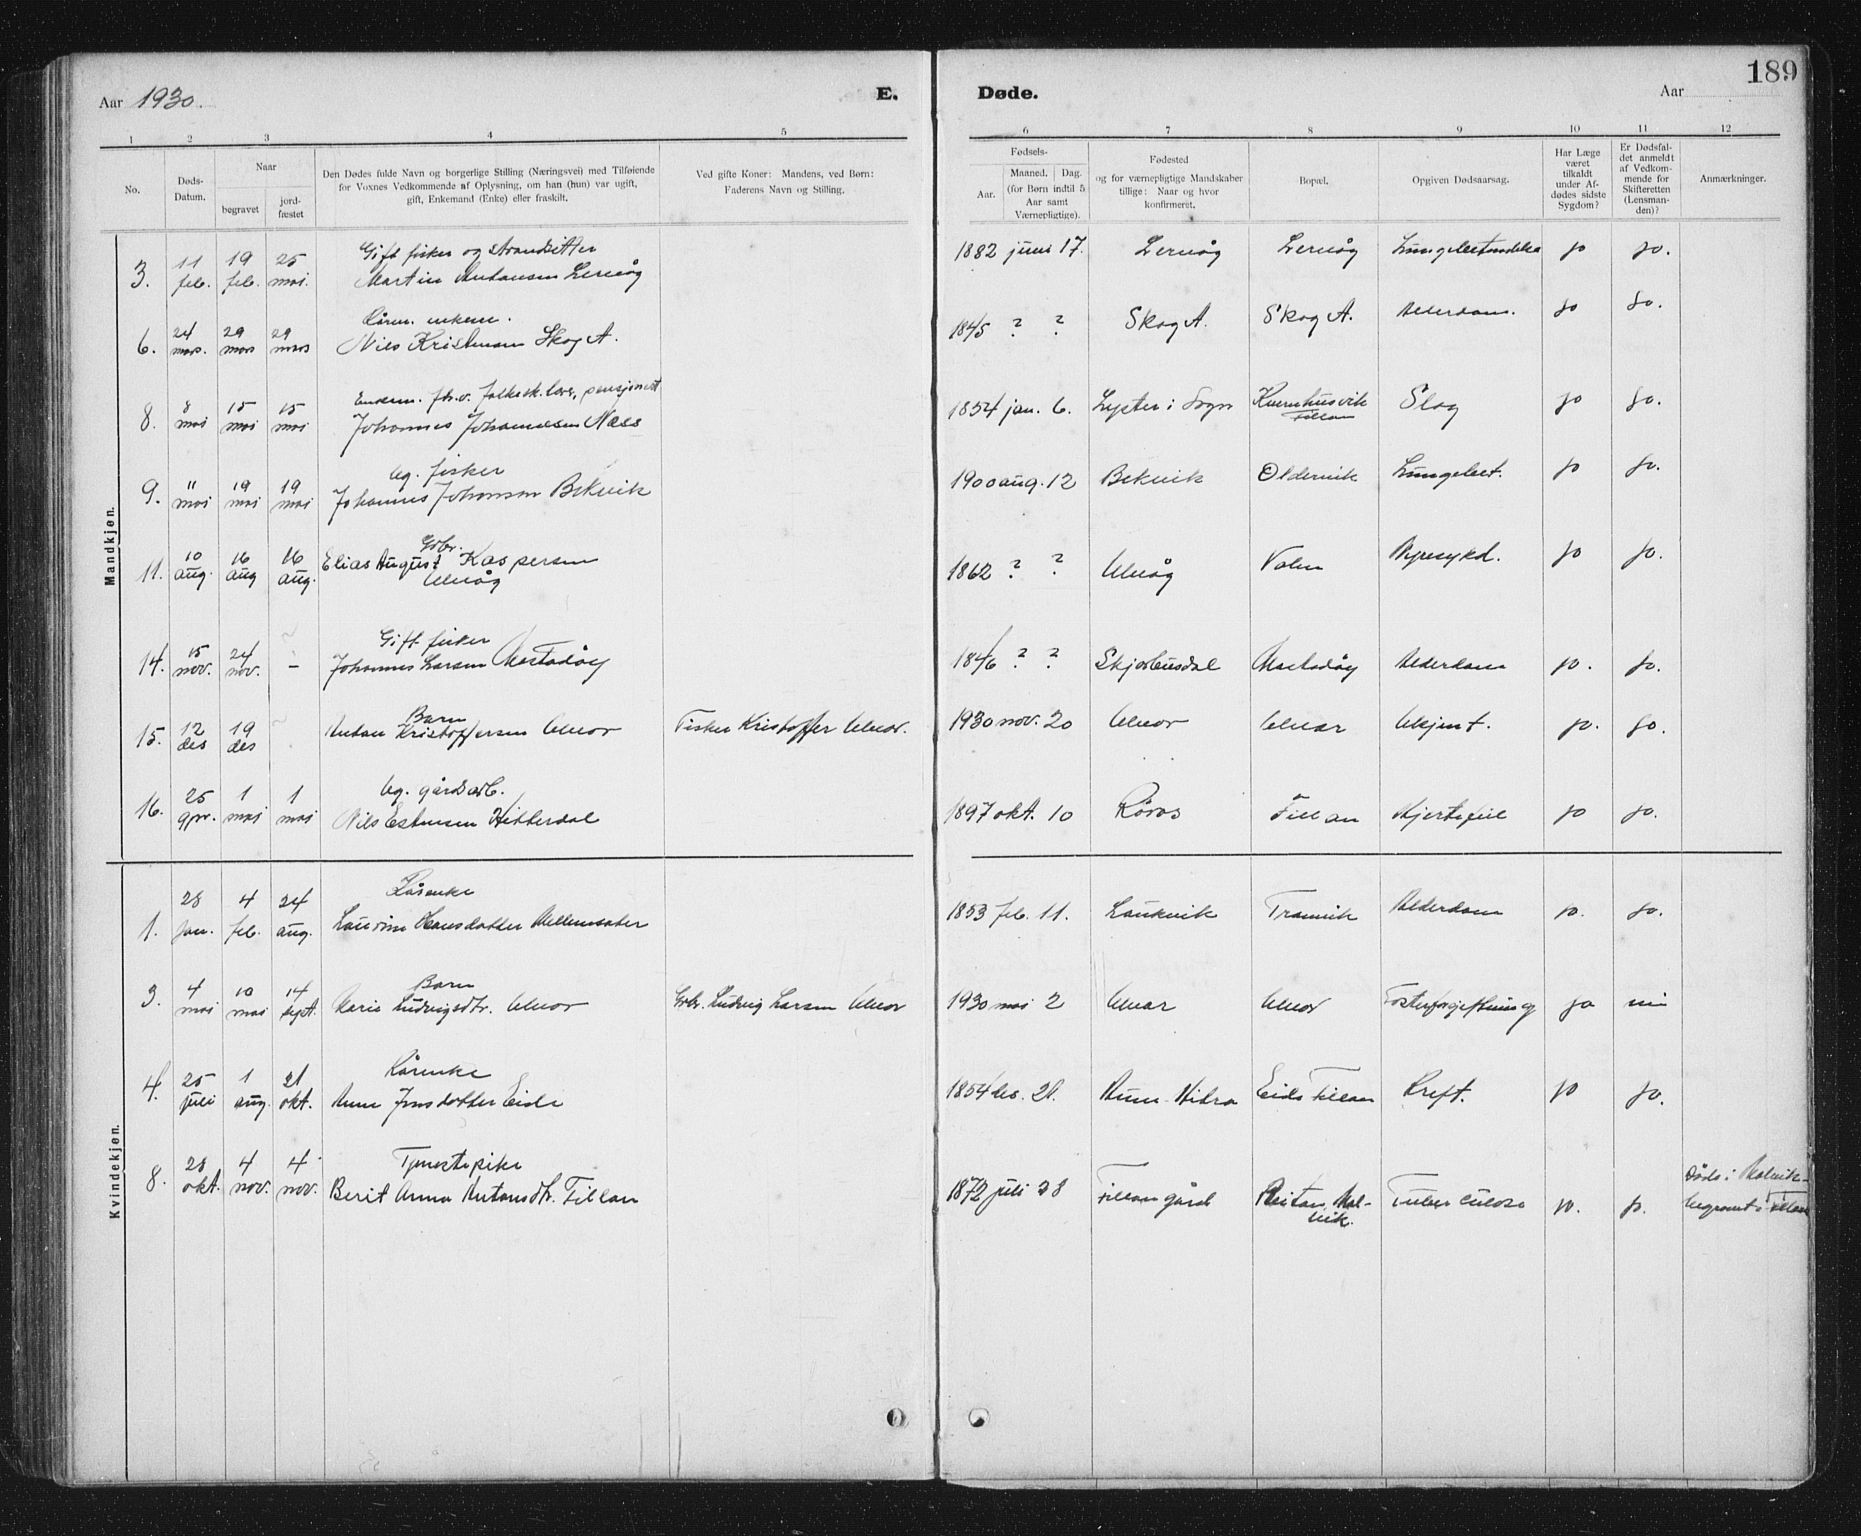 189
Aar 1930.
E.
Døde.
Aar
1 2 3 4 5 6 7 8 9 10 11 12
No.
Døds-Datum.
Naar
begravet
jord-fæstet
Den Dødes fulde Navn og borgerlige Stilling (Næringsvei) med Tilføiende
for Voxnes Vedkommende af Oplysning, om han (hun) var ugift,
gift, Enkemand (Enke) eller fraskilt.
Ved gifte Koner: Mandens, ved Børn:
Faderens Navn og Stilling.
Fødsels-
Aar.
Maaned. Dag.
(for Børn indtil 5
Aar samt
Værnepligtige).
Fødested
og for værnepligtige Mandskaber
tillige: Naar og hvor
konfirmeret.
Bopæl.
Opgiven Dødsaarsag.
Har Læge
været
tilkaldt
under Af-
dødes sidste
Sygdom?
Er Dødsfal-
det anmeldt
af Vedkom-
mende for
Skifteretten
(Lensman-
den)?
Anmærkninger.
Mandkjøn.
Gift fisker og strandsitter
3. 11 feb. 19 feb. 25 mai. Martin Antonsen 1882 juni 17. ja ja.
6. 24 mars. 29 mars 29 mars Nils Kristensen Skog A. 1845 ? ? Skog A. Skog A. Alderdom. ja ja.
Enkem. fh.v. folkesk.lærer, pensjonist
8. 8 mai 15 mai 15 mai Johannes Johannesen Næss 1854 jan. 6. Lyster i Sogn Kvernhusvik Fillan Slag ja ja.
Ug. fisker
9. 11 mai 19 mai 19 mai Johannes Johansen Bekvik 1900 aug. 12 Bekvik Oldervik ja ja.
Gbr.
11. 10 aug. 16 aug 16 aug. Elias August Kaspersen Ulvøy 1862 ? ? Ulvøy Valen Nyresykd. ja ja.
Gift fisker
14. 15 nov. 24 nov. – Johannes Larsen Mastadøy 1846 ? ? Mastadøy Alderdom ja. ja.
Barn
15. 12 des 19 des - Anton Kristoffersen Ulvøy Fisker Kristoffer Ulvøy. 1930 nov. 20 Ulvøy Ulvøy Ukjent. ja. ja.
Ug. gårdsarb.
16. 25 apr. 1 mai 1 mai Nils Estensen Hitterdal 1897 okt. 10 Røros Fillan Hjertefeil ja ja.
Kvindekjøn.
Kårenke
1. 28 Jan. 4 feb. 24 aug. Laurine Hansdatter Mellemsæter 1853 feb. 11. Laukvik Tranvik Alderdom ja. ja.
Barn
3. 4 mai 10 mai 14 sept. Marie Ludvigsdtr. Ulvøy Gbr. Ludvig Larsen Ulvøy 1930 mai 2 Ulvøy Ulvøy Fosterforgiftning ja nei
Kårenke
4. 25 juli 1 aug. 21 okt. Anne Jensdatter Eide 1854 des. 21. Hitra Eide Fillan Kreft. ja ja.
Tjenestepike
8. 28 okt. 4 nov. 4 nov. Berit Anna Antonsdtr. Fillan 1872 juli 28 Fillan gård Reitan, Malvik. Tuberkulose ja. ja. Døde i Malvik – begravet i Fillan